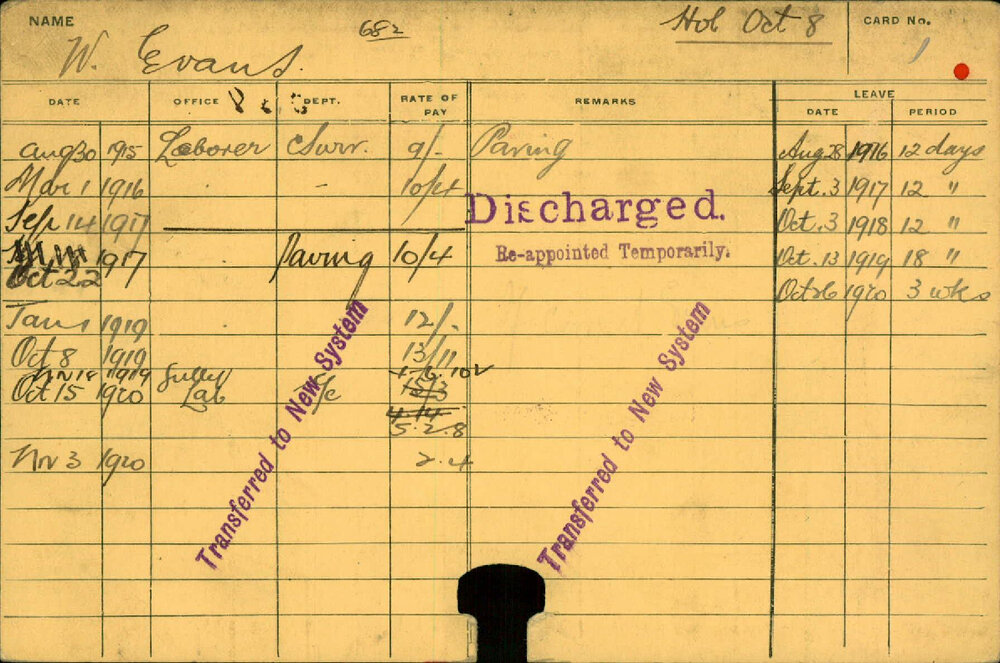 NAME 682 Hol Oct 8 CARD No.
W. Evans. 1
DATE OFFICE DEPT. RATE OF PAY REMARKS LEAVE
DATE PERIOD
Aug 30 1915 Laborer Surv. 9/- Paving Aug 28 1916 12 days
Mar 1 1916 - 10/4 Sept. 3 1917 12 "
Discharged.
Sep 14 1917 Oct. 3 1918 12 "
Re-appointed Temporarily.
Oct 22 1917 Paving 10/4 Oct. 13 1919 18 "
Oct 26 1920 3 wks
Jan 1 1919 12/-
Oct 8 1919 13/11
Nov 18 1919 Gully
Oct 15 1920 Lab 15/3
4.14
5.2.8
Nov 3 1920 2.4
Transferred to New System
Transferred to New System